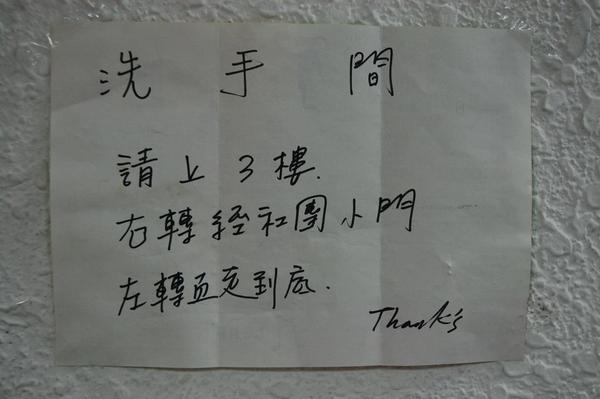 洗手間
請上3樓.
右轉經社團小門
左轉直走到底.
Thank's